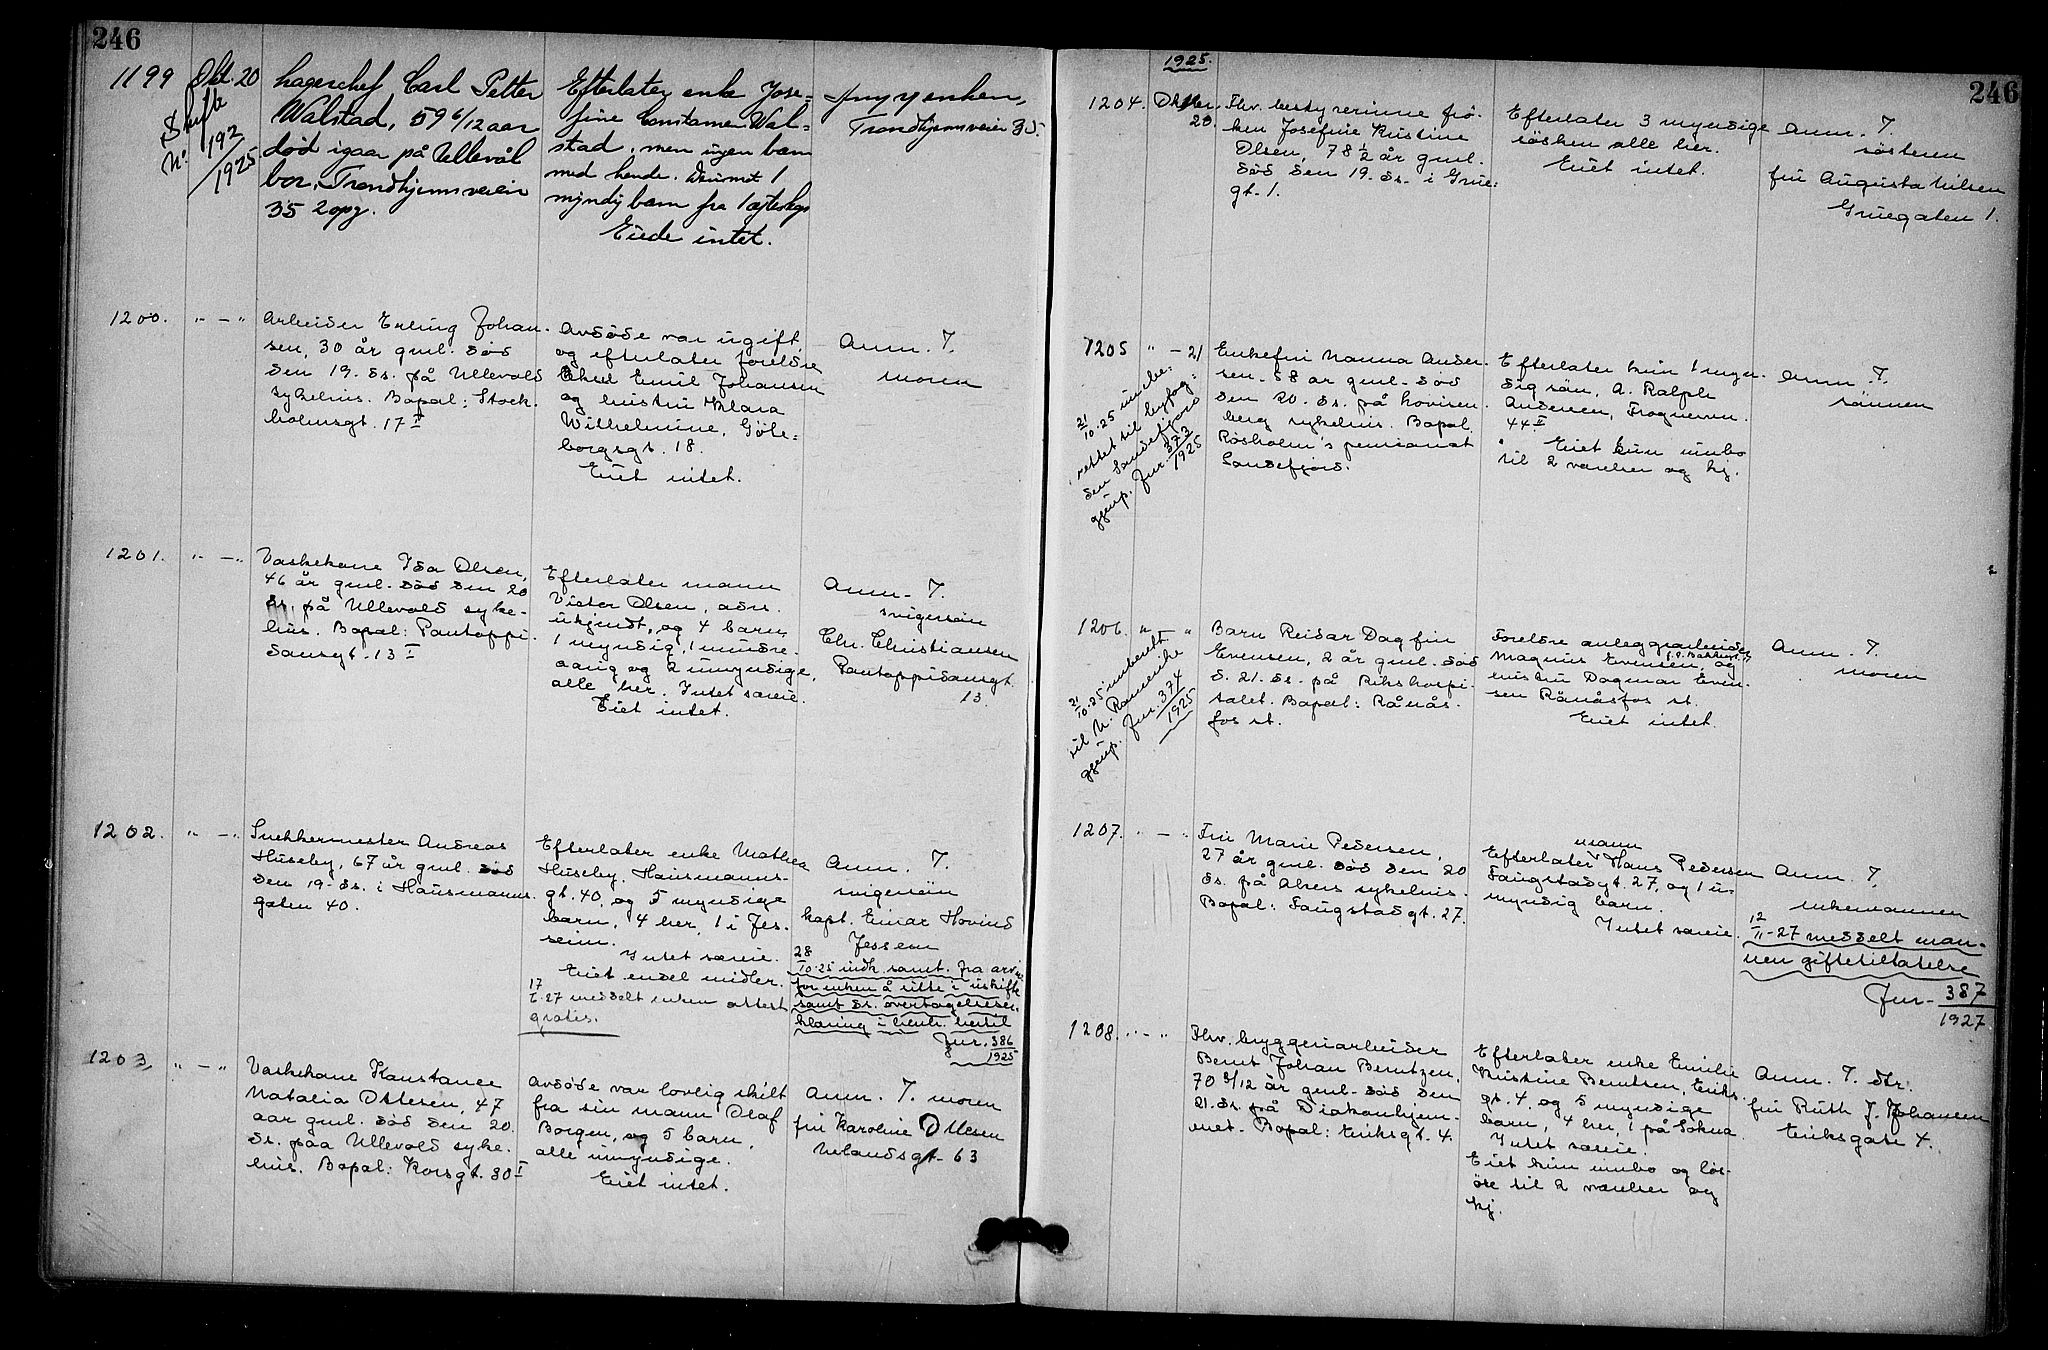 246
1199
Okt. 20
Skifte
No. 192
/1925
Lagerchef Carl Petter
Walstad, 59 6/12 aar
død igaar på Ullevål
bor. Trondhjemsveien
35 2 opg.
Efterlater enke Jose-
fine Constance Wal-
stad, men ingen barn
med hende. Derimot 1
myndig barn fra 1 ægteskap
Eiede intet.
enken,
Trondhjemsveien 35.
1200.
" — "
Arbeider Erling Johan-
sen, 30 år gml. død
den 19. ds. på Ullevold
sykehus. Bopæl: Stock-
holmsgt. 17 II
Avdøde var ugift
og efterlater foreldre
Emil Johansen
og hustru Klara
Wilhelmine, Göte-
borgsgt. 18.
Eiet intet.
Anm. T.
moren
1201.
" — "
Vaskekone Ida Olsen,
46 år gml. død den 20
ds. på Ullevold syke-
hus. Bopæl: Pantoppi-
dansgt. 13 I
Efterlater mann
Victor Olsen, adrs.
ukjendt, og 4 barn
1 myndig, 1 mindre-
aarig og 2 umyndige,
alle her. Intet særeie.
Eiet intet.
Anm. T.
svigersön
Chr. Christiansen
Pantoppidansgt.
13.
1202.
" — "
Snekkermester Andreas
Huseby, 67 år gml. død
den 19. ds. i Hausmanns-
gaten 40.
Efterlater enke Mathea
Huseby, Hausmanns-
gt. 40, og 5 myndige
barn, 4 her, 1 i Jes-
seim.
Intet særeie.
Eiet endel midler.
17
27 meddelt enken attest
gratis.
Anm. T.
svigersön
kapt. Einar Hovind
Jesseim
28
10-25 indk. samt. fra arv.
for enken å sitte i uskifte
samt ds. overtagelseser-
klæring i henh. hertil
Jnr. 386
1925
1203.
" — "
Vaskekone Konstance
Natalia Ottesen, 47
aar gml. død den 20.
ds. paa Ullevold syke-
hus. Bopæl: Korsgt. 30 I
Avdøde var lovlig skilt
fra sin mann Olaf
Borgen, og 5 barn,
alle umyndige.
Eiet intet.
Anm. T. moren
fru Karoline Ottesen
Uelandsgt. 63
246
1925.
1204.
Oktbr.
20.
Fhv. bestyrerinne frö-
ken Josefine Kristine
Olsen, 78 1/2 år gml.
död den 19. ds. i Grue-
gt. 1.
Efterlater 3 myndige
søsken alle her.
Eiet intet.
Anm. T.
søsteren
fru Augusta Nilsen
Gruegaten 1.
1205
" — 21
21
10-25 innbe-
rettet til byfog-
den Sandefjord
gjenp. Jnr. 373
1925
Enkefru Nanna Ander-
sen. 58 år gml. död
den 20. ds. på Lovisen-
berg sykehus. Bopæl.
Rosholm's pensionat
Sandefjord.
Efterlater kun 1 myn-
dig sön, A. Ralph
Andersen, Frognervn.
44 II
Eiet kun innbo
til 2 værelser og kj.
Anm. T.
sönnen
1206.
" — "
21
10-25 innberett
til N. Romerike
gjenp. Jnr. 374
1925
Barn Reidar Dagfin
Evensen, 2 år gml. död
d. 21. ds. på Rikshospi-
talet. Bopæl: Rånås-
fos st.
Foreldre anleggsarbeider
Magnus Evensen, og
hustru Dagmar Even-
sen Rånåsfos st.
Eiet intet.
Anm. T.
moren
1207.
" — "
Fru Marie Pedersen,
27 år gml. död den 20
ds. på Akers sykehus.
Bopæl: Faugstadgt. 27.
mann
Efterlater Hans Pedersen
Faugstadgt. 27, og 1 u-
myndig barn.
Intet særeie.
Anm. T.
enkemannen
12
11-27 meddelt man-
nen giftetillatelse
Jnr. 387
1927.
1208.
" — "
Fhv. bryggeriarbeider
Bernt Johan Berntzen,
70 8/12 år gml. död den
21. ds. på Diakonhjem-
met. Bopæl: Eriksgt. 4.
Efterlater enke Emilie
Kristine Berntsen, Eriks-
gt. 4, og 5 myndige
barn, 4 her, 1 på Sokna.
Intet særeie.
Eiet kun innbo og lös-
öre til 2 værelser og
kj.
Anm. T. dtr.
fru Ruth J. Johansen
Eriksgate 4.